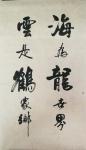 海為龍世界
雲是鶴家鄉